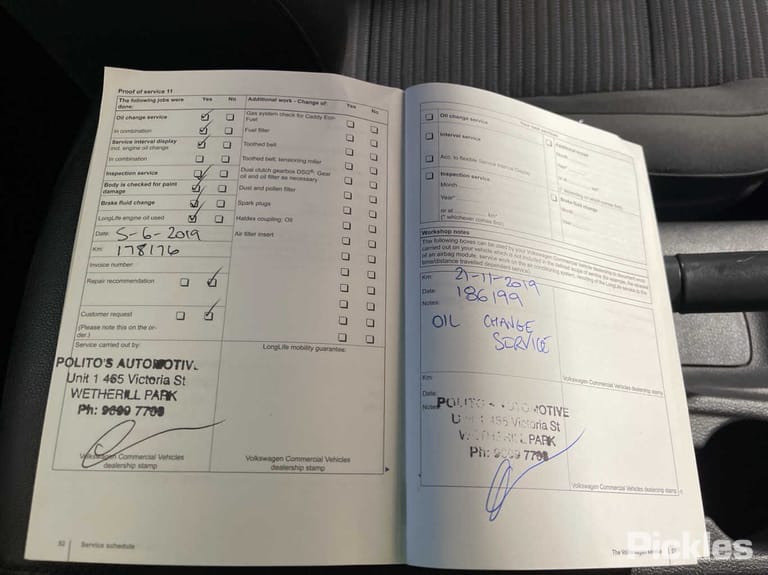 Proof of service 11
The following jobs were done: Yes No
Oil change service
In combination
Service interval display
incl. engine oil change
In combination
Inspection service
Body is checked for paint
damage
Brake fluid change
LongLife engine oil used
Date: 5-6-2019
Km: 178176
Invoice number
Repair recommendation
Customer request
(Please note this on the or-
der.)
Service carried out by:
POLITO'S AUTOMOTIV
Unit 1 465 Victoria St
WETHERILL PARK
Ph: 9609 7700
Volkswagen Commercial Vehicles
dealership stamp
Additional work - Change of: Yes No
Gas system check for Caddy Eco-
Fuel
Fuel filter
Toothed belt
Toothed belt; tensioning roller
Dual clutch gearbox DSG®: Gear
oil and oil filter as necessary
Dust and pollen filter
Spark plugs
Haldex coupling: Oil
Air filter insert
LongLife mobility guarantee:
Volkswagen Commercial Vehicles
dealership stamp
52 Service schedule
Your next service:
Oil change service
Interval service
Acc. to flexible Service Interval Display
Inspection service
Month
Year*
or at km*
(* whichever comes first)
Additional work:
Month
Year*
or at km*
(* depending on which comes first)
Brake fluid change
Month
Year
Workshop notes
The following boxes can be used by your Volkswagen Commercial Vehicles dealership to document work
carried out on your vehicle which is not included in the defined scope of service (for example, the renewal
of an airbag module, service work on the air conditioning system, resetting of the LongLife service to the
time/distance travelled dependent service).
Km: 21-11-2019
Date: 186199
Notes:
OIL CHANGE
SERVICE
Volkswagen Commercial Vehicles
dealership stamp
Km
Date:
Notes
POLITO'S AUTOMOTIVE
Unit 1 465 Victoria St
WETHERILL PARK
Ph: 9609 7700
Volkswagen Commercial Vehicles dealership stamp
Pickles